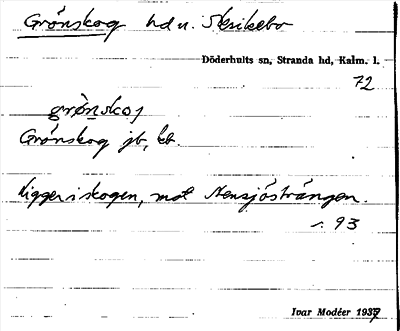 Grönskog hd u. Stensikebo
Döderhults sn, Stranda hd, Kalm. l.
72
grönskoj
Grönskog jb, kb.
Ligger i skogen, mot Stensjösträngen.
s. 93
Ivar Modéer 1937